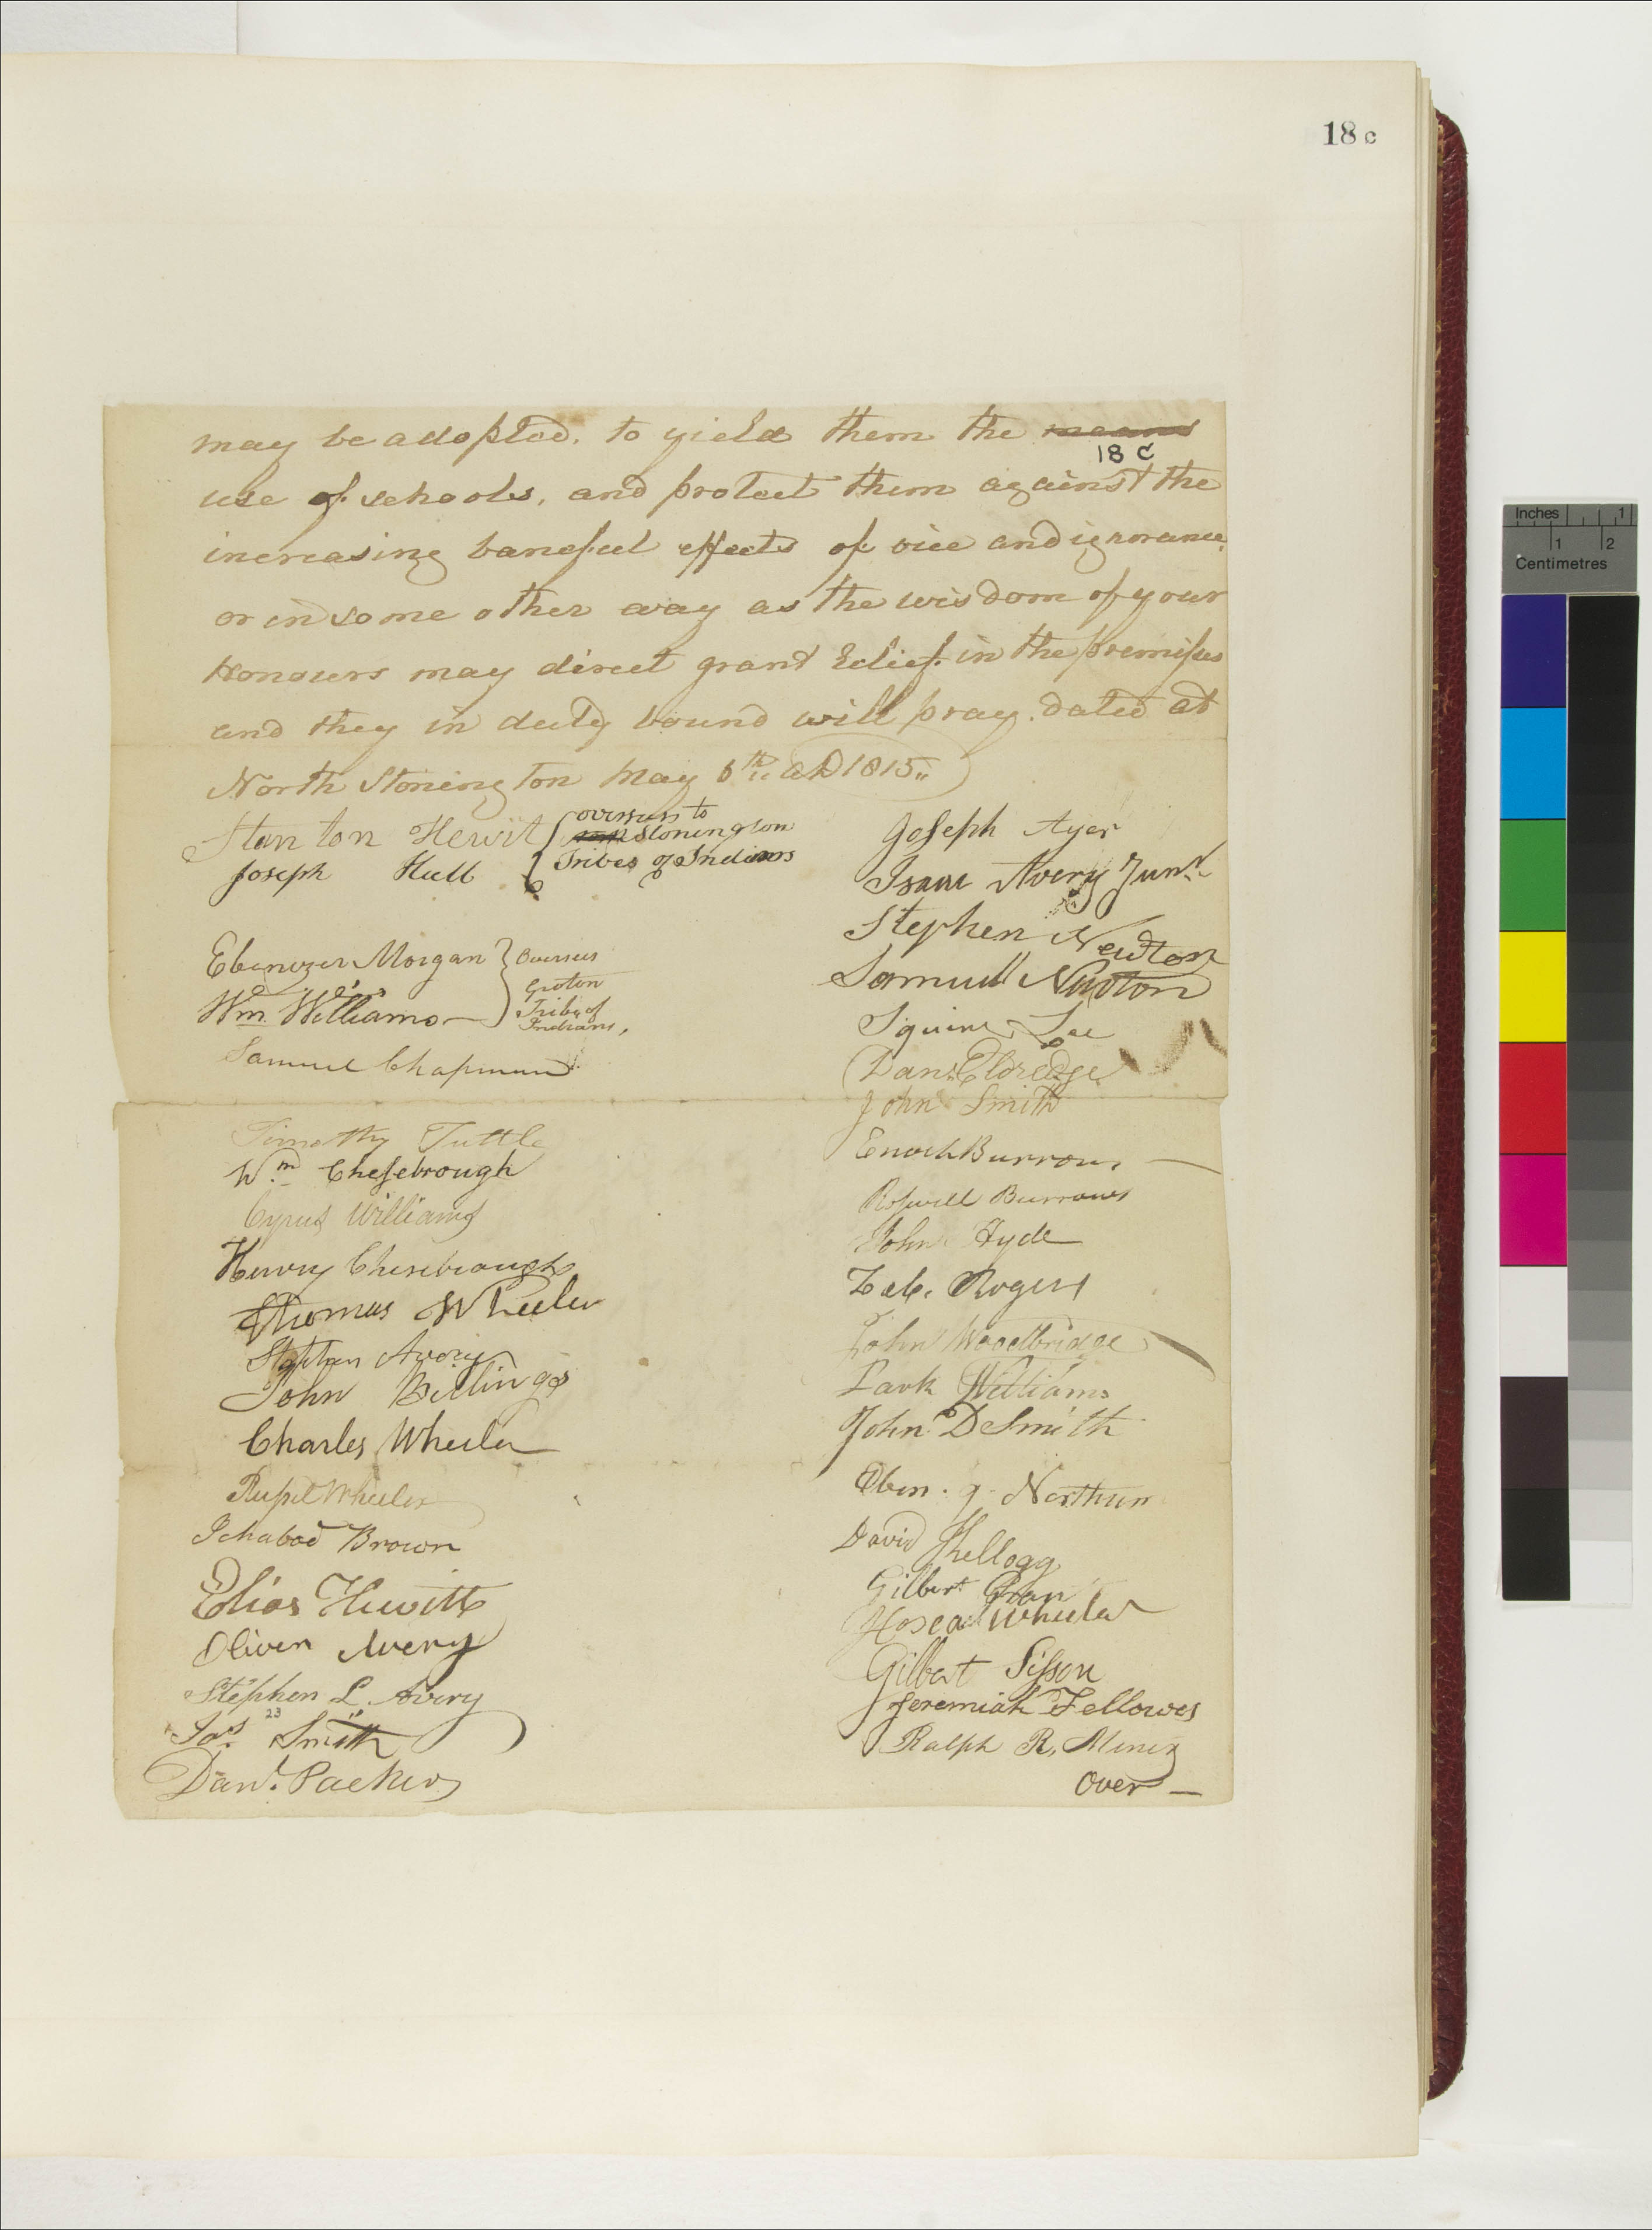 18 c
may be adopted. to yield them the means
18 C
use of schools, and protect them against the
increasing banefeel effects of vice and ignorance.
or in some other way as the wisdom of your
Honours may direct grant Relief in the premises
and they in duty bound will pray. dated at
North Stonington May 6th AD 1815
Stanton Hewit
Joseph Hull
overseers to
Stonington
Tribes of Indians
Ebenezer Morgan
Wm. Williams
Overseers
Groton
Tribe of
Indians,
Samuel Chapman
Timothy Tuttle
Wm Chesebrough
Cyrus Williams
Henry Chesebrough
Thomas Wheeler
Stephen Avery
John Billings
Charles Wheeler
Russel Wheeler
Ichabod Brown
Elias Hewitt
Oliver Avery
Stephen L. Avery
23
Jas Smith
Danl. Packer
Joseph Ayer
Isaac Avery Junr.
Stephen Newton
Samuell Newton
Squire Lee
Danl. Eldredge
John Smith
Enoch Burrows
Roswell Burrows
John Hyde
Zab. Rogers
John Woodbridge
Park Williams
John D Smith
Eben. g. Northum
David Kellogg
Gilbert
Hosea Wheeler
Gilbert Sisson
Jeremiah Fellowes
Ralph R. Miner
Over
Inches 1
1 2
Centimetres